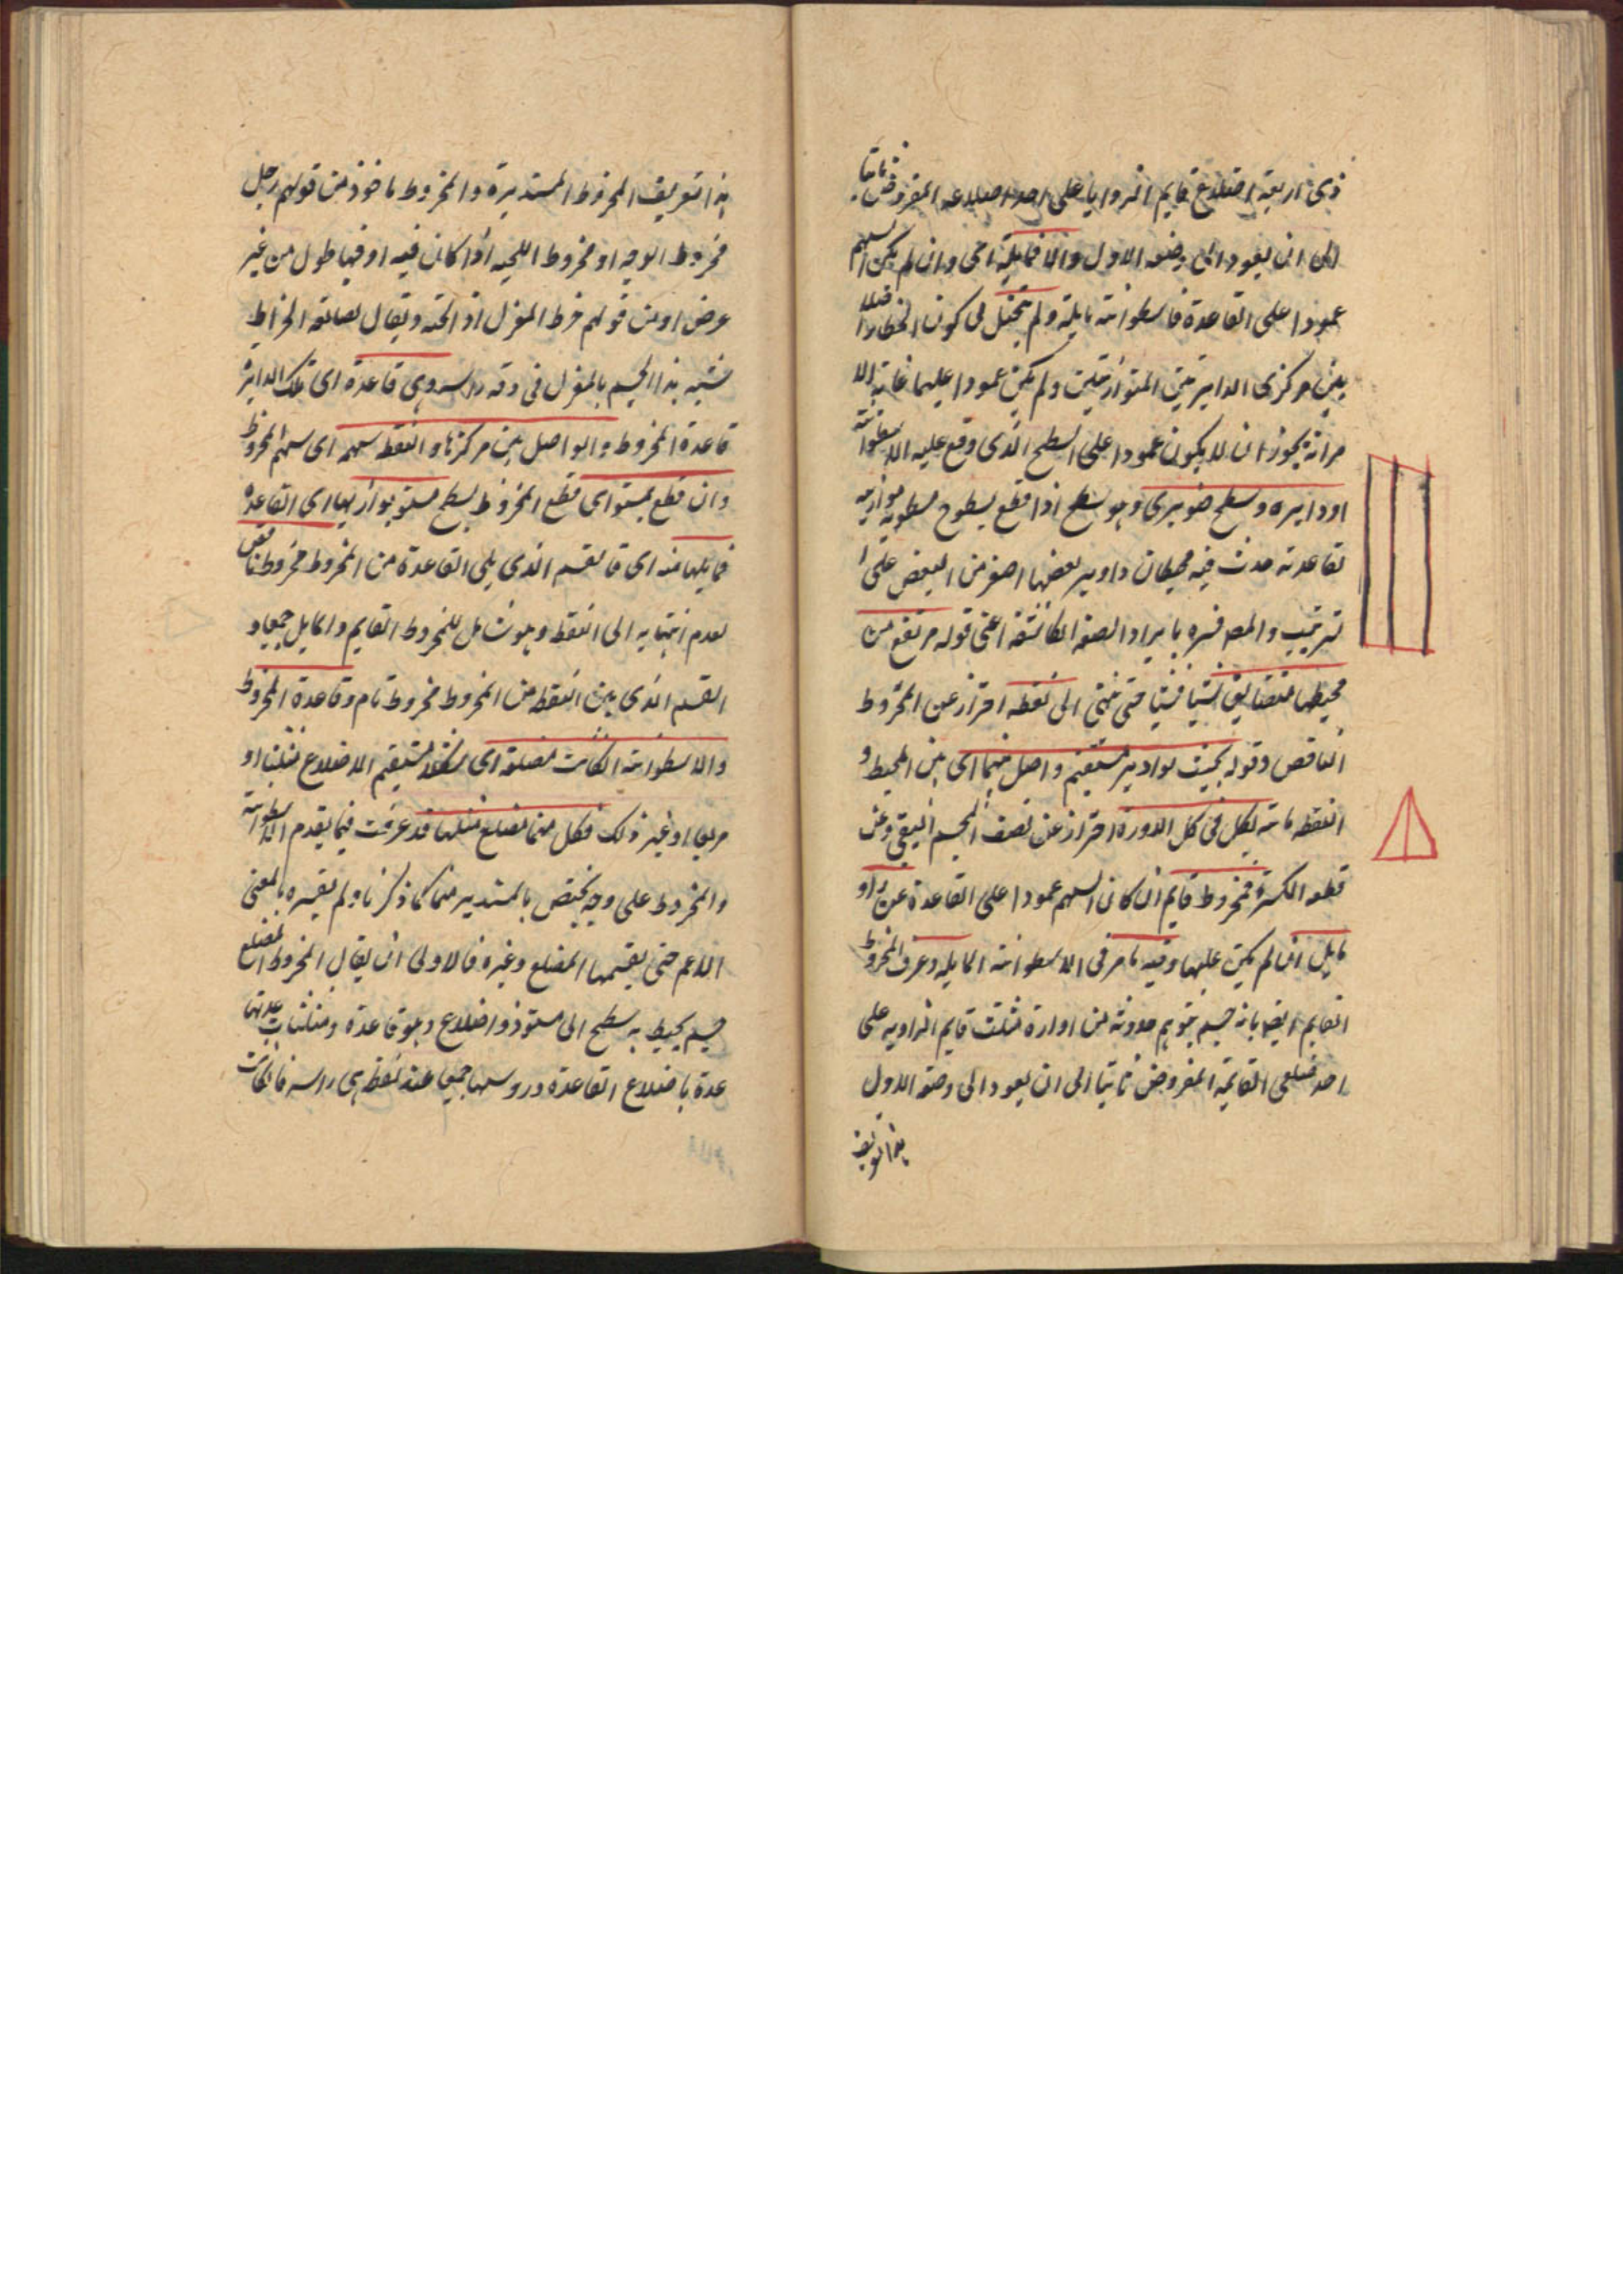 ذى اربعة اضلاع قايم الزوايا على احد اضلاعه المفروض ثابتا
الى ان يعود الى وضعه الاول والا فمايلة اى وان لم يكن السهم
عمودا على القاعدة فاسطوانة مايلة ولم يتخيل لى كون الخط الواصل
بين مركزى الدايرتين المتوازيتين ولم يكن عمودا عليهما غاية الا
مر انه يجوز ان لا يكون عمودا على السطح الذى وقع عليه الاسطوانة
او دايره وسطح صنوبرى وهو سطح اذا قطع بسطوح مستويه موازيه
لقاعدته حدث فيه محيطات دواير بعضها اصغر من البعض على ا
لترتيب والمص فسره بايراد الصفه الكاشفة اعنى قوله مرتفع من
محيطها متضايق شيئا فشيئا حتى ينتهى الى نقطه احتراز عن المخروط
الناقص وقوله بحيث لو ادير مستقيم واصل بينهما اى بين المحيط و
النقطه ماسه بكل فى كل الدورة احتراز عن نصف الجسم البيضى وعن
قطعه الكرة فمخروط قايم ان كان السهم عمودا على القاعدة
مايل ان لم يكن عليها وفيه ما مر فى الاسطوانة المايله وعرف المخروط
القايم ايضا بانه جسم يتوهم حدوثه من ادارة مثلث قايم الزاويه على
احد ضلعى القايمة المفروض ثابتا الى ان يعود الى وضعه الاول
هذا تعريف
هذا تعريف المخروط المستديرة والمخروط ماخوذ من قولهم رجل
مخروط الوجه او مخروط اللحيه اذا كان فيه او فيها طول من غير
عرض او من قولهم خرط المغزل اذا نحته ويقال لصانعه الخراط
فشبه هذا الجسم بالمغزل فى دقه راسه وهى قاعدة اى تلك الدايرة
قاعدة المخروط والواصل بين مركزها والنقطه سهمه اى سهم المخروط
وان قطع بمستو اى قطع المخروط بسطح مستو يوازيها اى القاعده
فما يليها منه اى فالقسم الذى يلى القاعدة من المخروط مخروط ناقص
لعدم انتهايه الى النقطه وهو شامل للمخروط القايم والمايل جميعا و
القسم الذى بين النقطه من المخروط مخروط تام وقاعدة المخروط
والاسطوانة ان كانت مضلعة اى شكلا مستقيم الاضلاع مثلثا او
مربعا او غير ذلك فكل منهما مضلع مثلها قد عرفت فيما تقدم الاسطوانة
والمخروط على وجه يختص بالمستدير منهما كما ذكرنا ولم يفسره بالمعنى
الاعم حتى يقسمها المضلع وغيره فالاولى ان يقال المخروط المضلع
جسم يحيط به سطح الى مستو ذو اضلاع وهو قاعدة ومثلثات عدتها
عدة باضلاع القاعدة وروسها جميعا عند نقطه هى راسه فان كانت